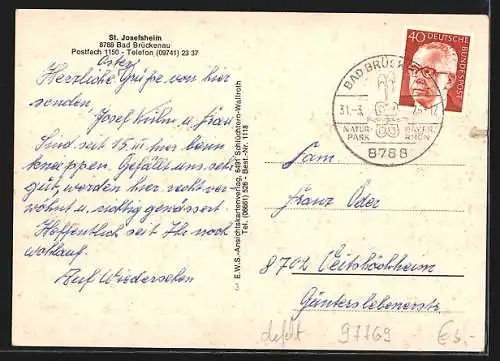 St. Josefsheim
8788 Bad Brückenau
Postfach 1150 - Telefon (09741) 23 37
Oster
Herzliche Grüße von hier
senden
Josef Kuhn u. Frau
Sind seit 15. III hier beim
kneippen. Gefällt uns sehr
gut, werden hier recht ver
wöhnt u. richtig gewässert
Hoffentlich seit Ihr noch
wohlauf.
Auf Wiedersehen
E.W.S.-Ansichtskartenverlag, 6491 Schlüchtern-Wallroth
Tel. (06661) 326 - Best.-Nr. 1118
3
40 DEUTSCHE BUNDESPOST
BAD BRÜCKENAU
31.-3.
NATUR-PARK BAYER. RHÖN
8788
Fam
Franz Oder
8702 Veitshöchheim
Günterslebenerstr.
defekt 97769 € 5,-